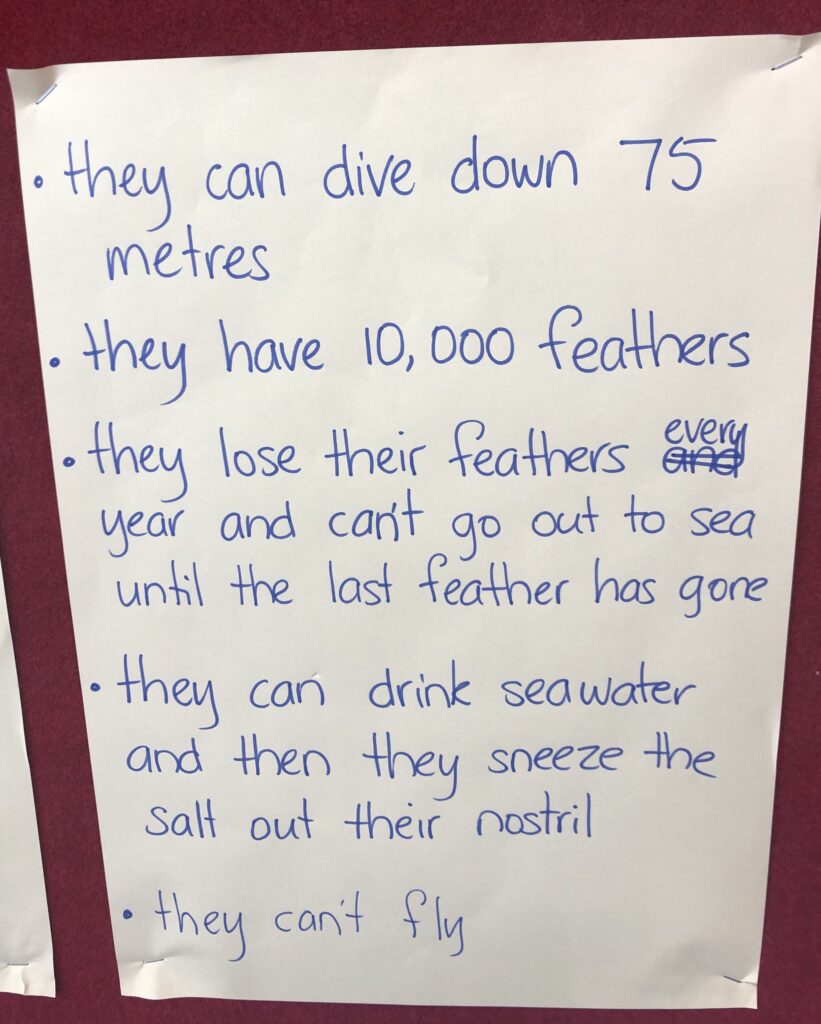 • they can dive down 75
metres
• they have 10,000 feathers
• they lose their feathers every
year and can't go out to sea
until the last feather has gone
• they can drink seawater
and then they sneeze the
salt out their nostril
• they can't fly